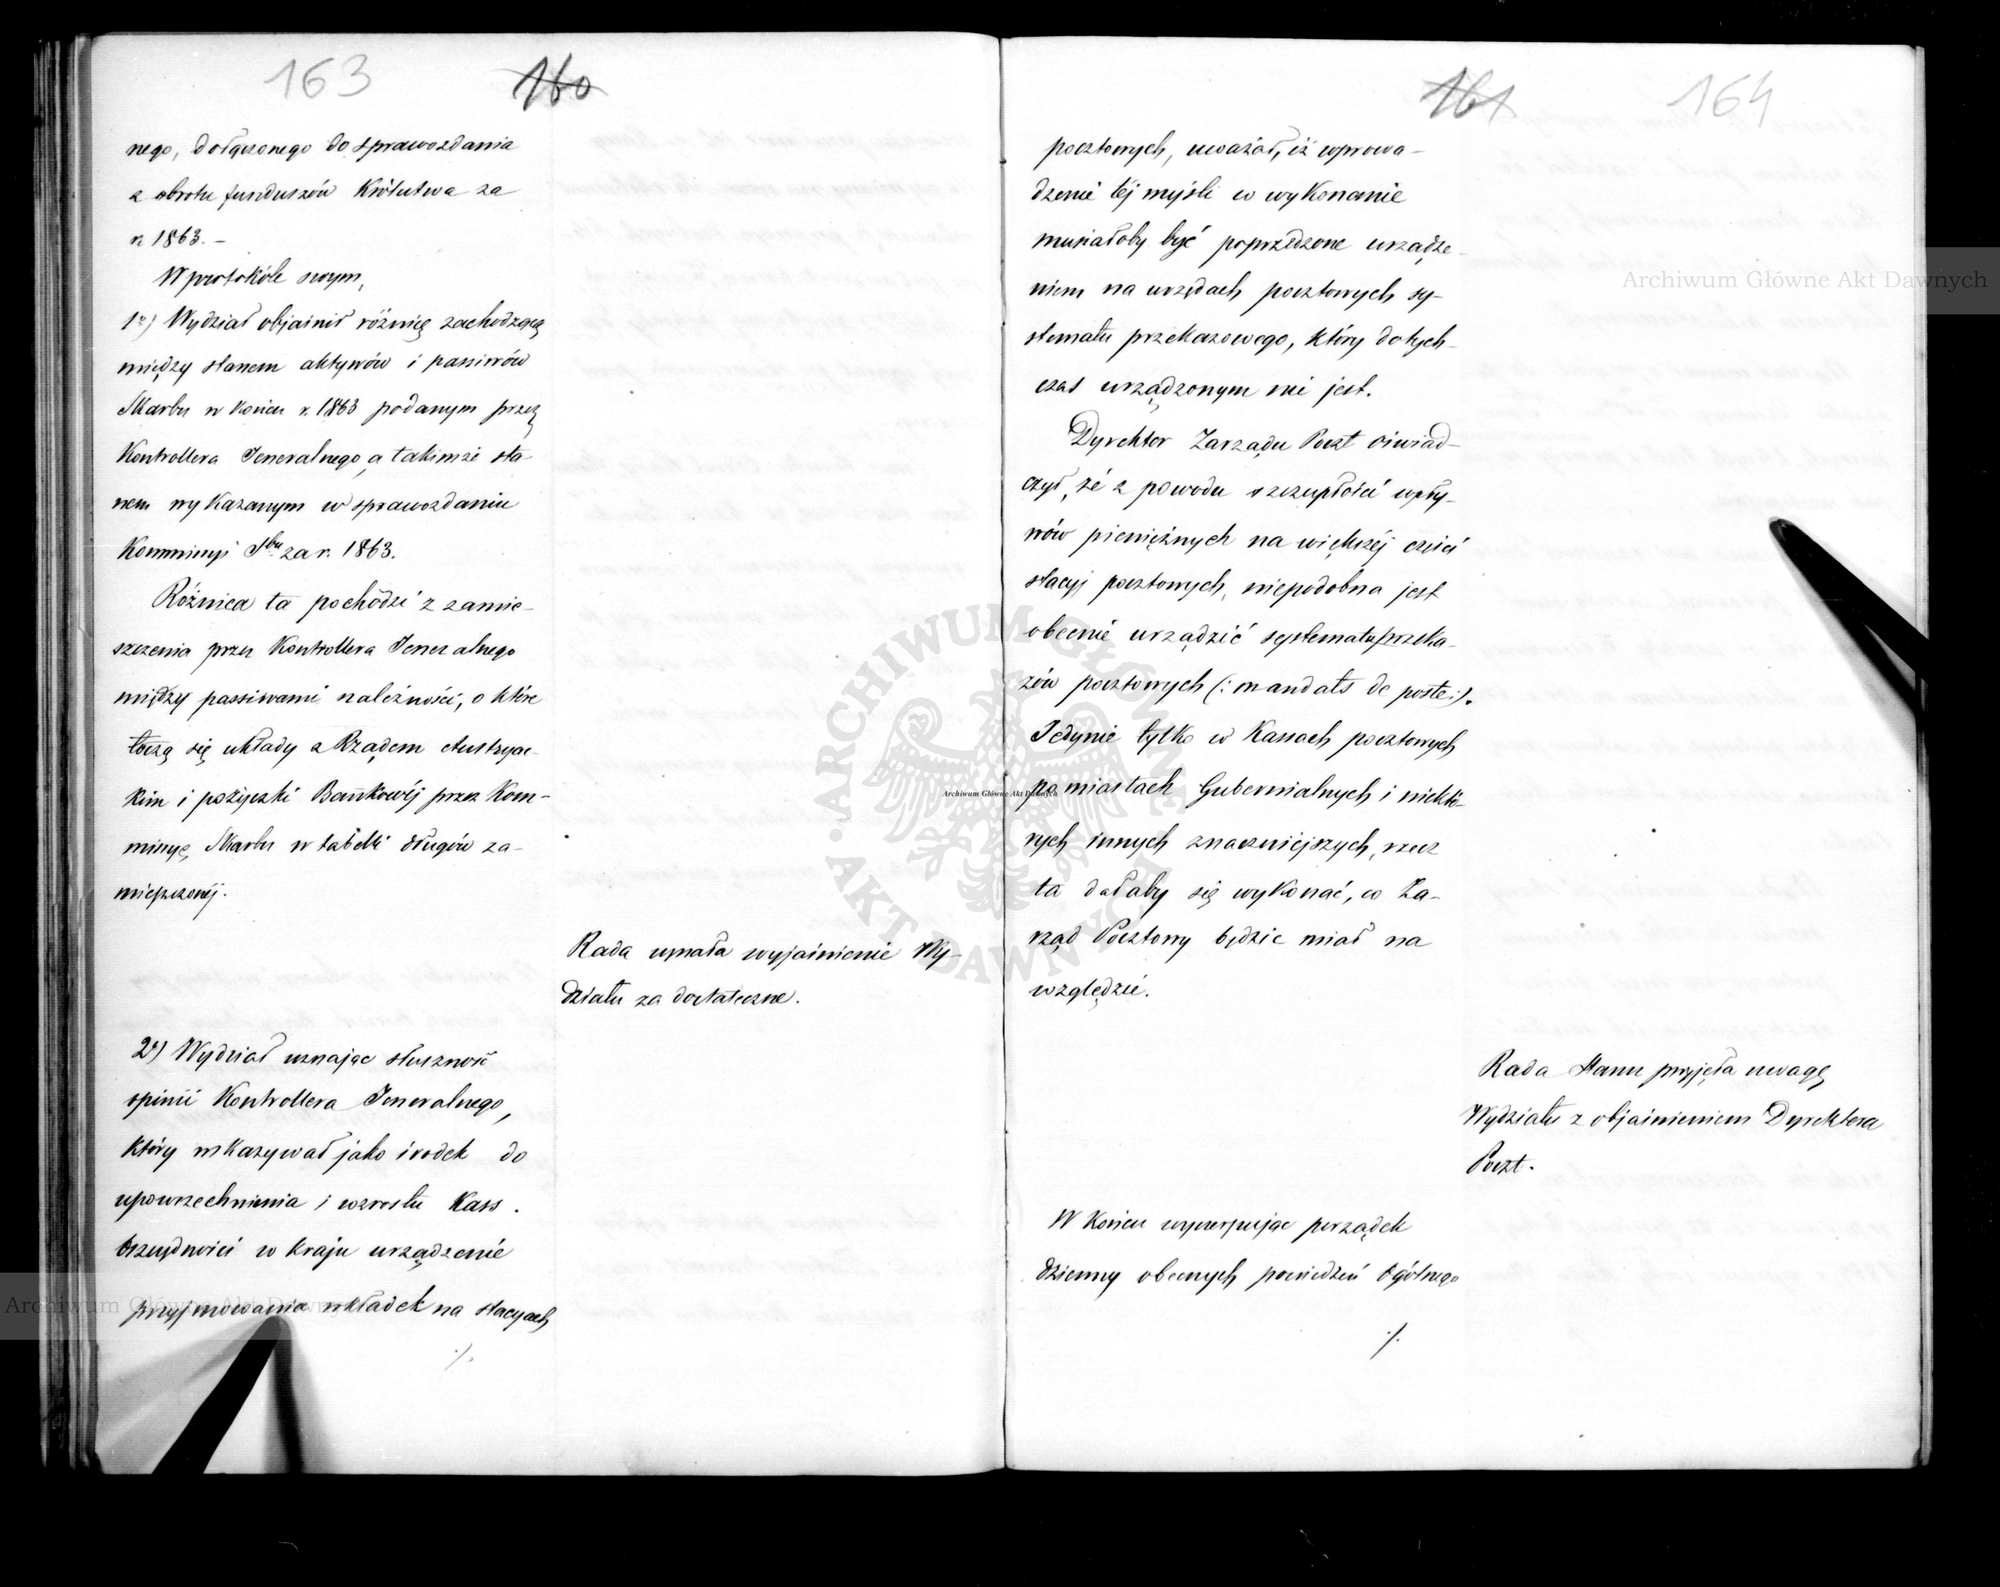 163
160
nego, dołączonego do sprawozdania
z obrotu funduszów Królestwa za
r. 1863. –
W protokóle swym,
1o) Wydział objaśnił różnicę zachodzącą
między stanem aktywów i passiwów
Skarbu w końcu r. 1863 podanym przez
Kontrollera Jeneralnego, a takimże sta-
nem wykazanym w sprawozdaniu
Kommissyi Sbu za r. 1863.
Różnica ta pochodzi z zamie-
szczenia przez Kontrollera Jeneralnego
między passiwami należności, o które
toczą się układy z Rządem Austryac-
kim i pożyczki Bankowéj przez Kom-
missyę Skarbu w tabelli długów za-
mieszczonéj.
Rada uznała wyjaśnienie Wy-
działu za dostateczne.
2o) Wydział uznając słuszność
opinii Kontrollera Jeneralnego,
który wskazywał jako środek do
upowszechnienia i wzrostu Kass
Oszczędności w kraju urządzenie
przyjmowania wkładek na stacyach
./.
161
164
pocztowych, uważał, iż wprowa-
dzenie téj myśli w wykonanie
musiałoby być poprzedzone urządze-
niem na urzędach pocztowych sy-
stematu przekazowego, który dotych-
czas urządzonym nie jest.
Dyrektor Zarządu Poczt oświad-
czył, że z powodu szczupłości wpły-
wów pieniężnych na większéj części
stacyj pocztowych, niepodobna jest
obecnie urządzić systematu przeka-
zów pocztowych (: mandats de poste :).
Jedynie tylko w Kassach pocztowych
po miastach Gubernialnych i niektó-
rych innych znaczniejszych, rzecz
ta dałaby się wykonać, co Za-
rząd Pocztowy będzie miał na
względzie.
Rada Stanu przyjęła uwagę
Wydziału z objaśnieniem Dyrektora
Poczt.
W końcu wyczerpując porządek
dzienny obecnych posiedzeń Ogólnego
./.
Archiwum Główne Akt Dawnych
Archiwum Główne Akt Dawnych
Archiwum Główne Akt Dawnych
ARCHIWUM GŁÓWNE AKT DAWNYCH